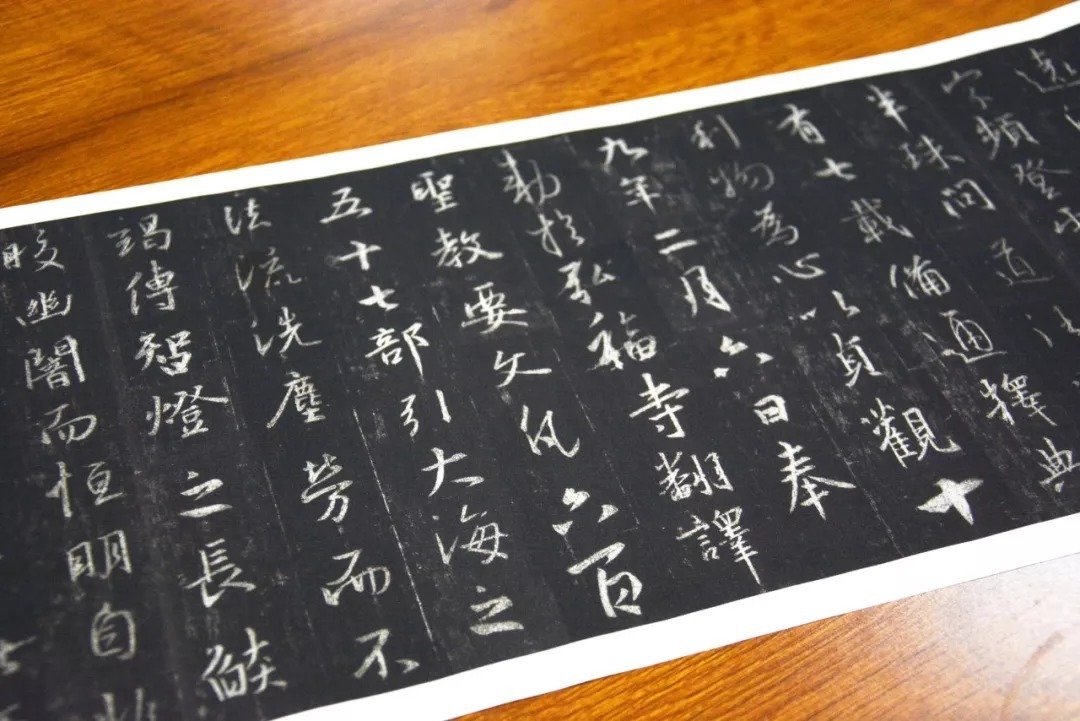 遠
字頻登
半珠問道法
有七載備通釋典
利物為心以貞觀十
九年二月六日奉
勅於弘福寺翻譯
聖教要文凡六百
五十七部引大海之
法流洗塵勞而不
竭傳智燈之長燄
皎幽闇而恒明自